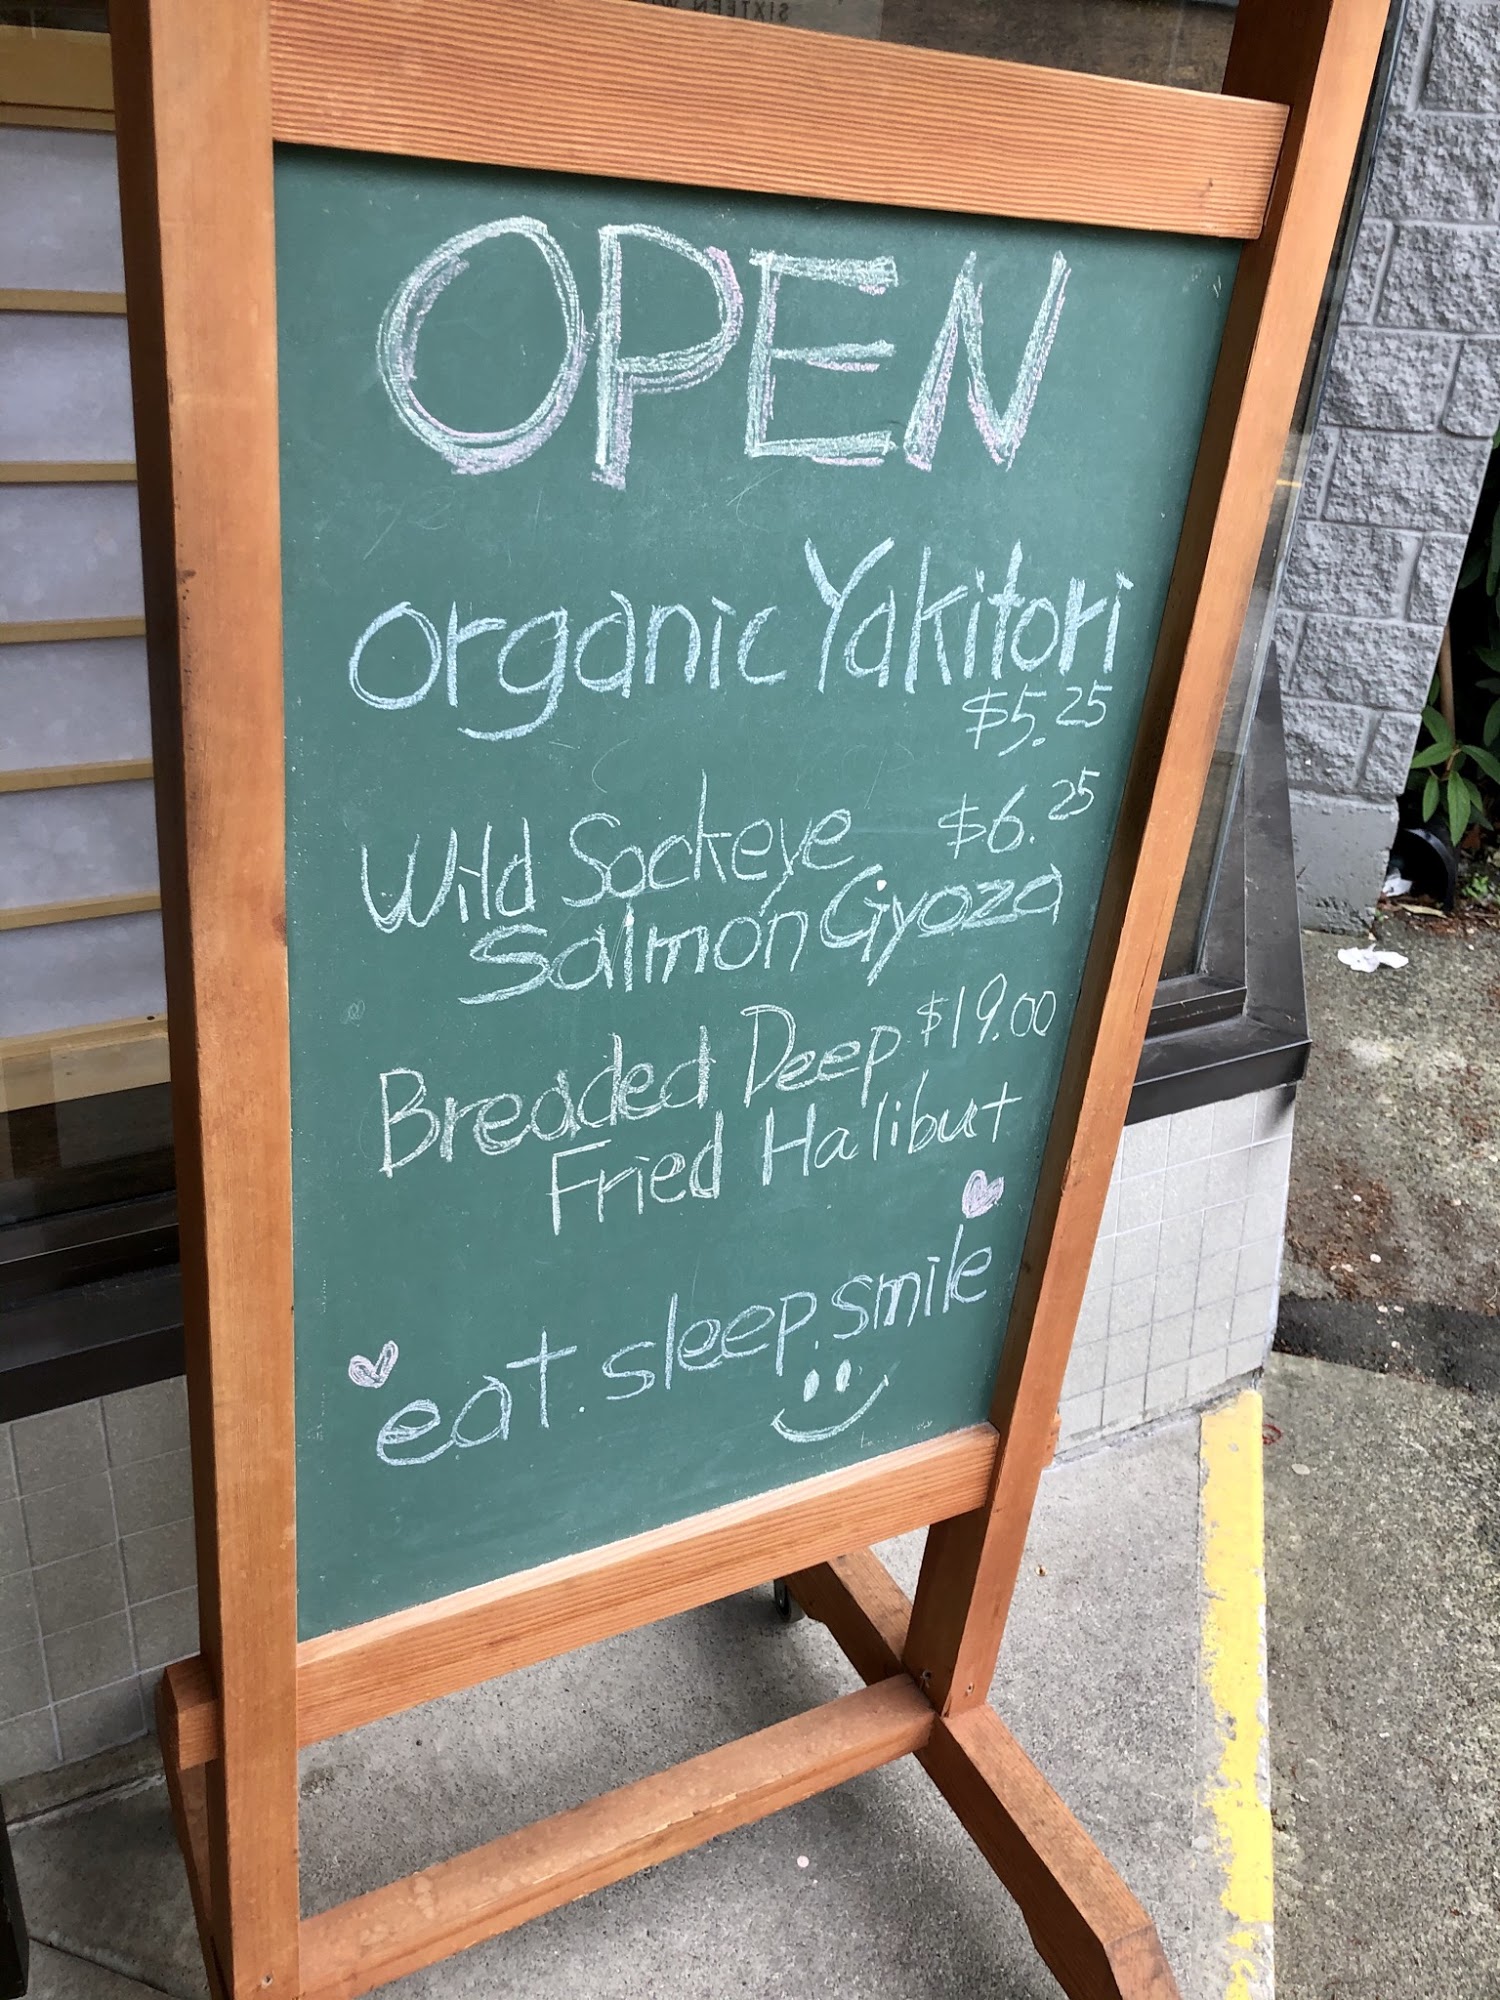 OPEN
Organic Yakitori
$5.25
Wild Sockeye $6.25
Salmon Gyoza
Breaded Deep $19.00
Fried Halibut
eat. sleep. smile